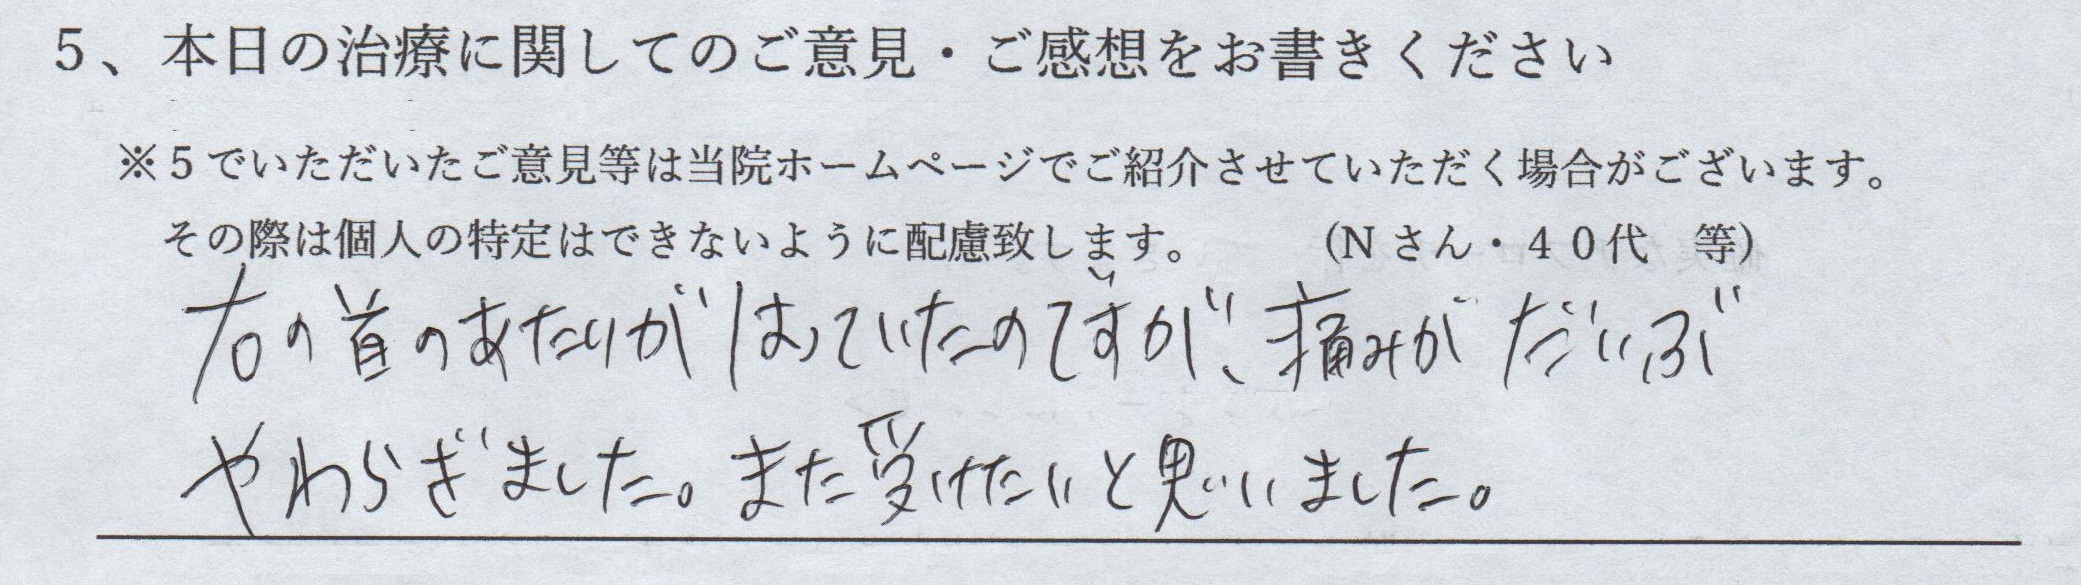 5、本日の治療に関してのご意見・ご感想をお書きください
※5でいただいたご意見等は当院ホームページでご紹介させていただく場合がございます。
その際は個人の特定はできないように配慮致します。　　　(Nさん・40代　等)
右の首のあたりがはっていたのですが、痛みがだいぶ
やわらぎました。また受けたいと思いました。